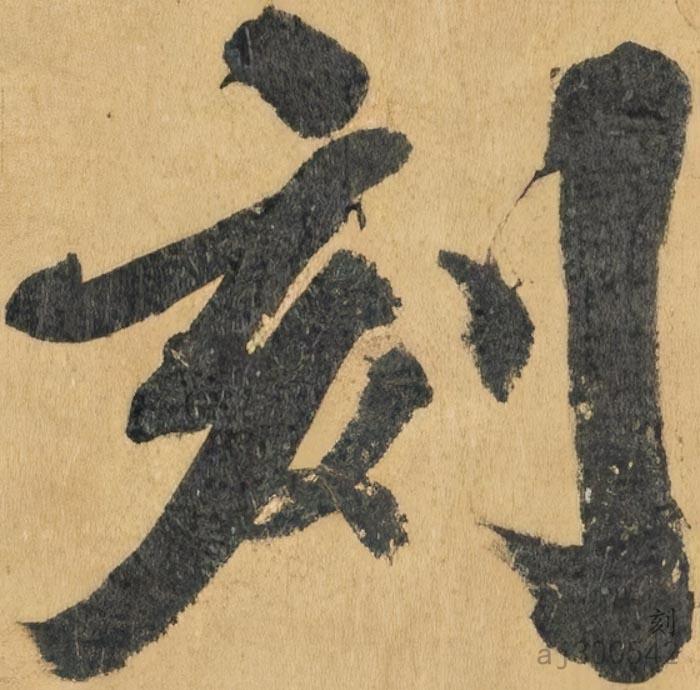 刻
刻
aj300542